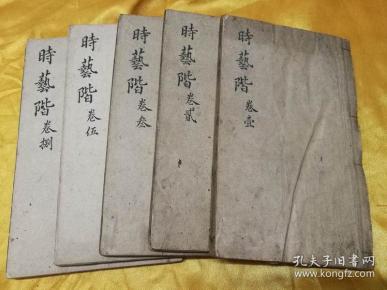 時藝階 卷壹
時藝階 卷貳
時藝階 卷叁
時藝階 卷伍
時藝階 卷捌
孔夫子旧书网
www.kongfz.com